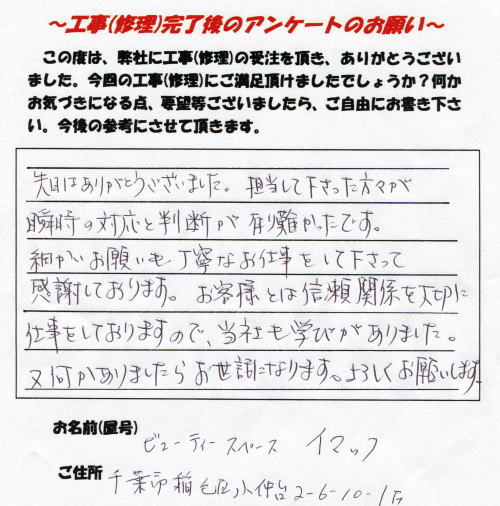 ～工事(修理)完了後のアンケートのお願い～
この度は、弊社に工事(修理)の受注を頂き、ありがとうござい
ました。今回の工事(修理)にご満足頂けましたでしょうか？何か
お気づきになる点、要望等ございましたら、ご自由にお書き下さ
い。今後の参考にさせて頂きます。
先日はありがとうございました。担当して下さった方々が
瞬時の対応と判断が有り難かったです。
細かいお願いも丁寧なお仕事をして下さって
感謝しております。お客様とは信頼関係を大切に
仕事をしておりますので、当社も学びがありました。
又何かありましたらお世話になります。よろしくお願いします
お名前(屋号) ビューティースペース イマック
ご住所 千葉市稲毛区小仲台2-6-10-1F